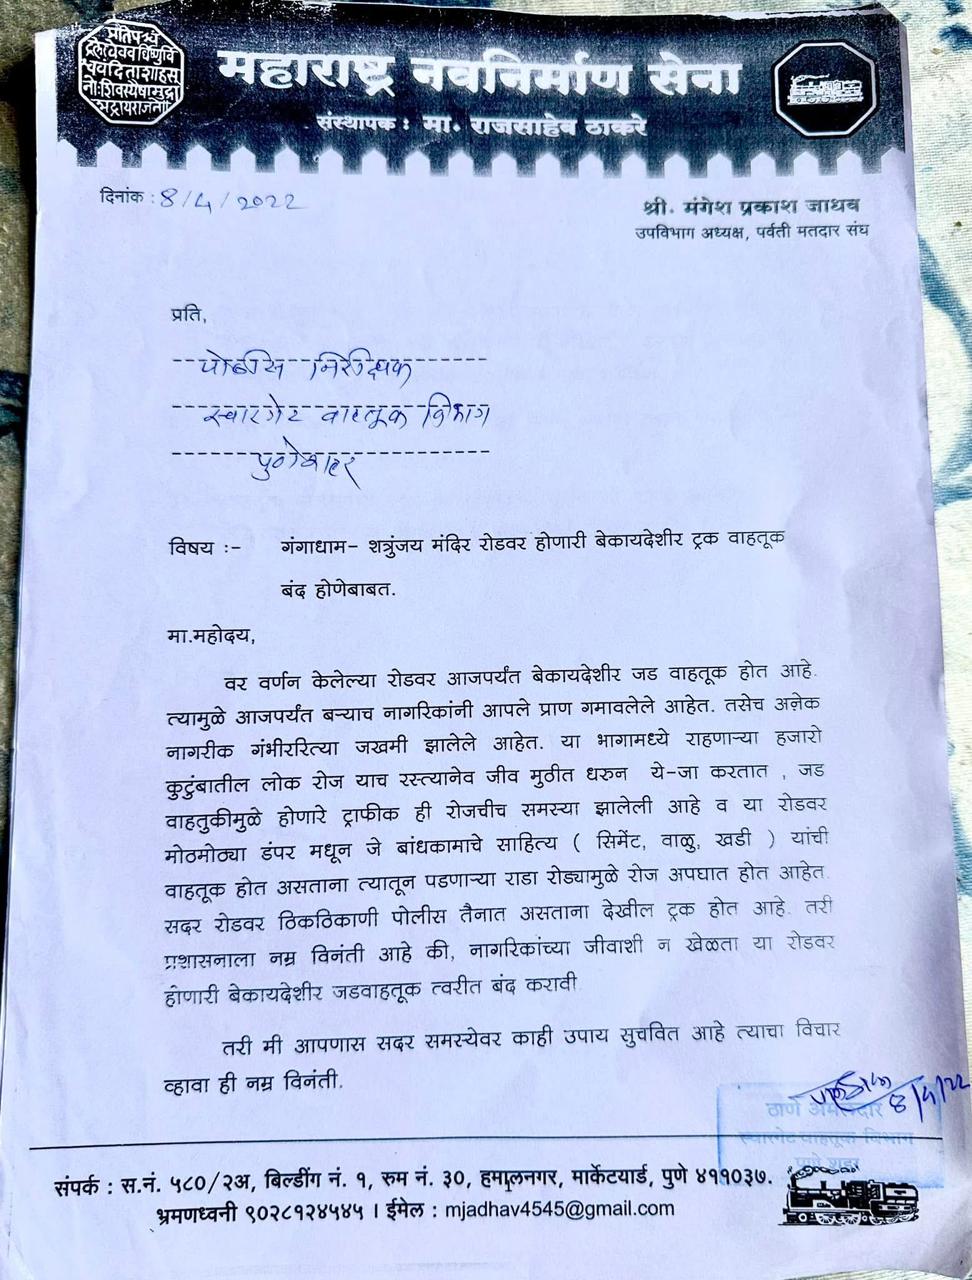 महाराष्ट्र नवनिर्माण सेना
संस्थापक : मा. राजसाहेब ठाकरे
दिनांक : 8/4/2022
श्री. मंगेश प्रकाश जाधव
उपविभाग अध्यक्ष, पर्वती मतदार संघ
प्रति,
पोलीस निरीक्षक
स्वारगेट वाहतूक विभाग
पुणे शहर
विषय :- गंगाधाम- शत्रुंजय मंदिर रोडवर होणारी बेकायदेशीर ट्रक वाहतूक
बंद होणेबाबत.
मा.महोदय,
वर वर्णन केलेल्या रोडवर आजपर्यंत बेकायदेशीर जड वाहतूक होत आहे.
त्यामुळे आजपर्यंत बऱ्याच नागरिकांनी आपले प्राण गमावलेले आहेत. तसेच अनेक
नागरीक गंभीररित्या जखमी झालेले आहेत. या भागामध्ये राहणाऱ्या हजारो
कुटुंबातील लोक रोज याच रस्त्यानेव जीव मुठीत धरुन ये-जा करतात , जड
वाहतुकीमुळे होणारे ट्राफीक ही रोजचीच समस्या झालेली आहे व या रोडवर
मोठमोठ्या डंपर मधून जे बांधकामाचे साहित्य ( सिमेंट, वाळु, खडी ) यांची
वाहतूक होत असताना त्यातून पडणाऱ्या राडा रोड्यामुळे रोज अपघात होत आहेत.
सदर रोडवर ठिकठिकाणी पोलीस तैनात असताना देखील ट्रक होत आहे. तरी
प्रशासनाला नम्र विनंती आहे की, नागरिकांच्या जीवाशी न खेळता या रोडवर
होणारी बेकायदेशीर जडवाहतूक त्वरीत बंद करावी
तरी मी आपणास सदर समस्येवर काही उपाय सुचवित आहे त्याचा विचार
व्हावा ही नम्र विनंती.
8/4/22
ठाणे अंमलदार
स्वारगेट वाहतूक विभाग
पुणे शहर
संपर्क : स.नं. ५८०/२अ, बिल्डींग नं. १, रुम नं. ३०, हमालनगर, मार्केटयार्ड, पुणे ४११०३७.
भ्रमणध्वनी ९०२८१२४५४५ । ईमेल : mjadhav4545@gmail.com